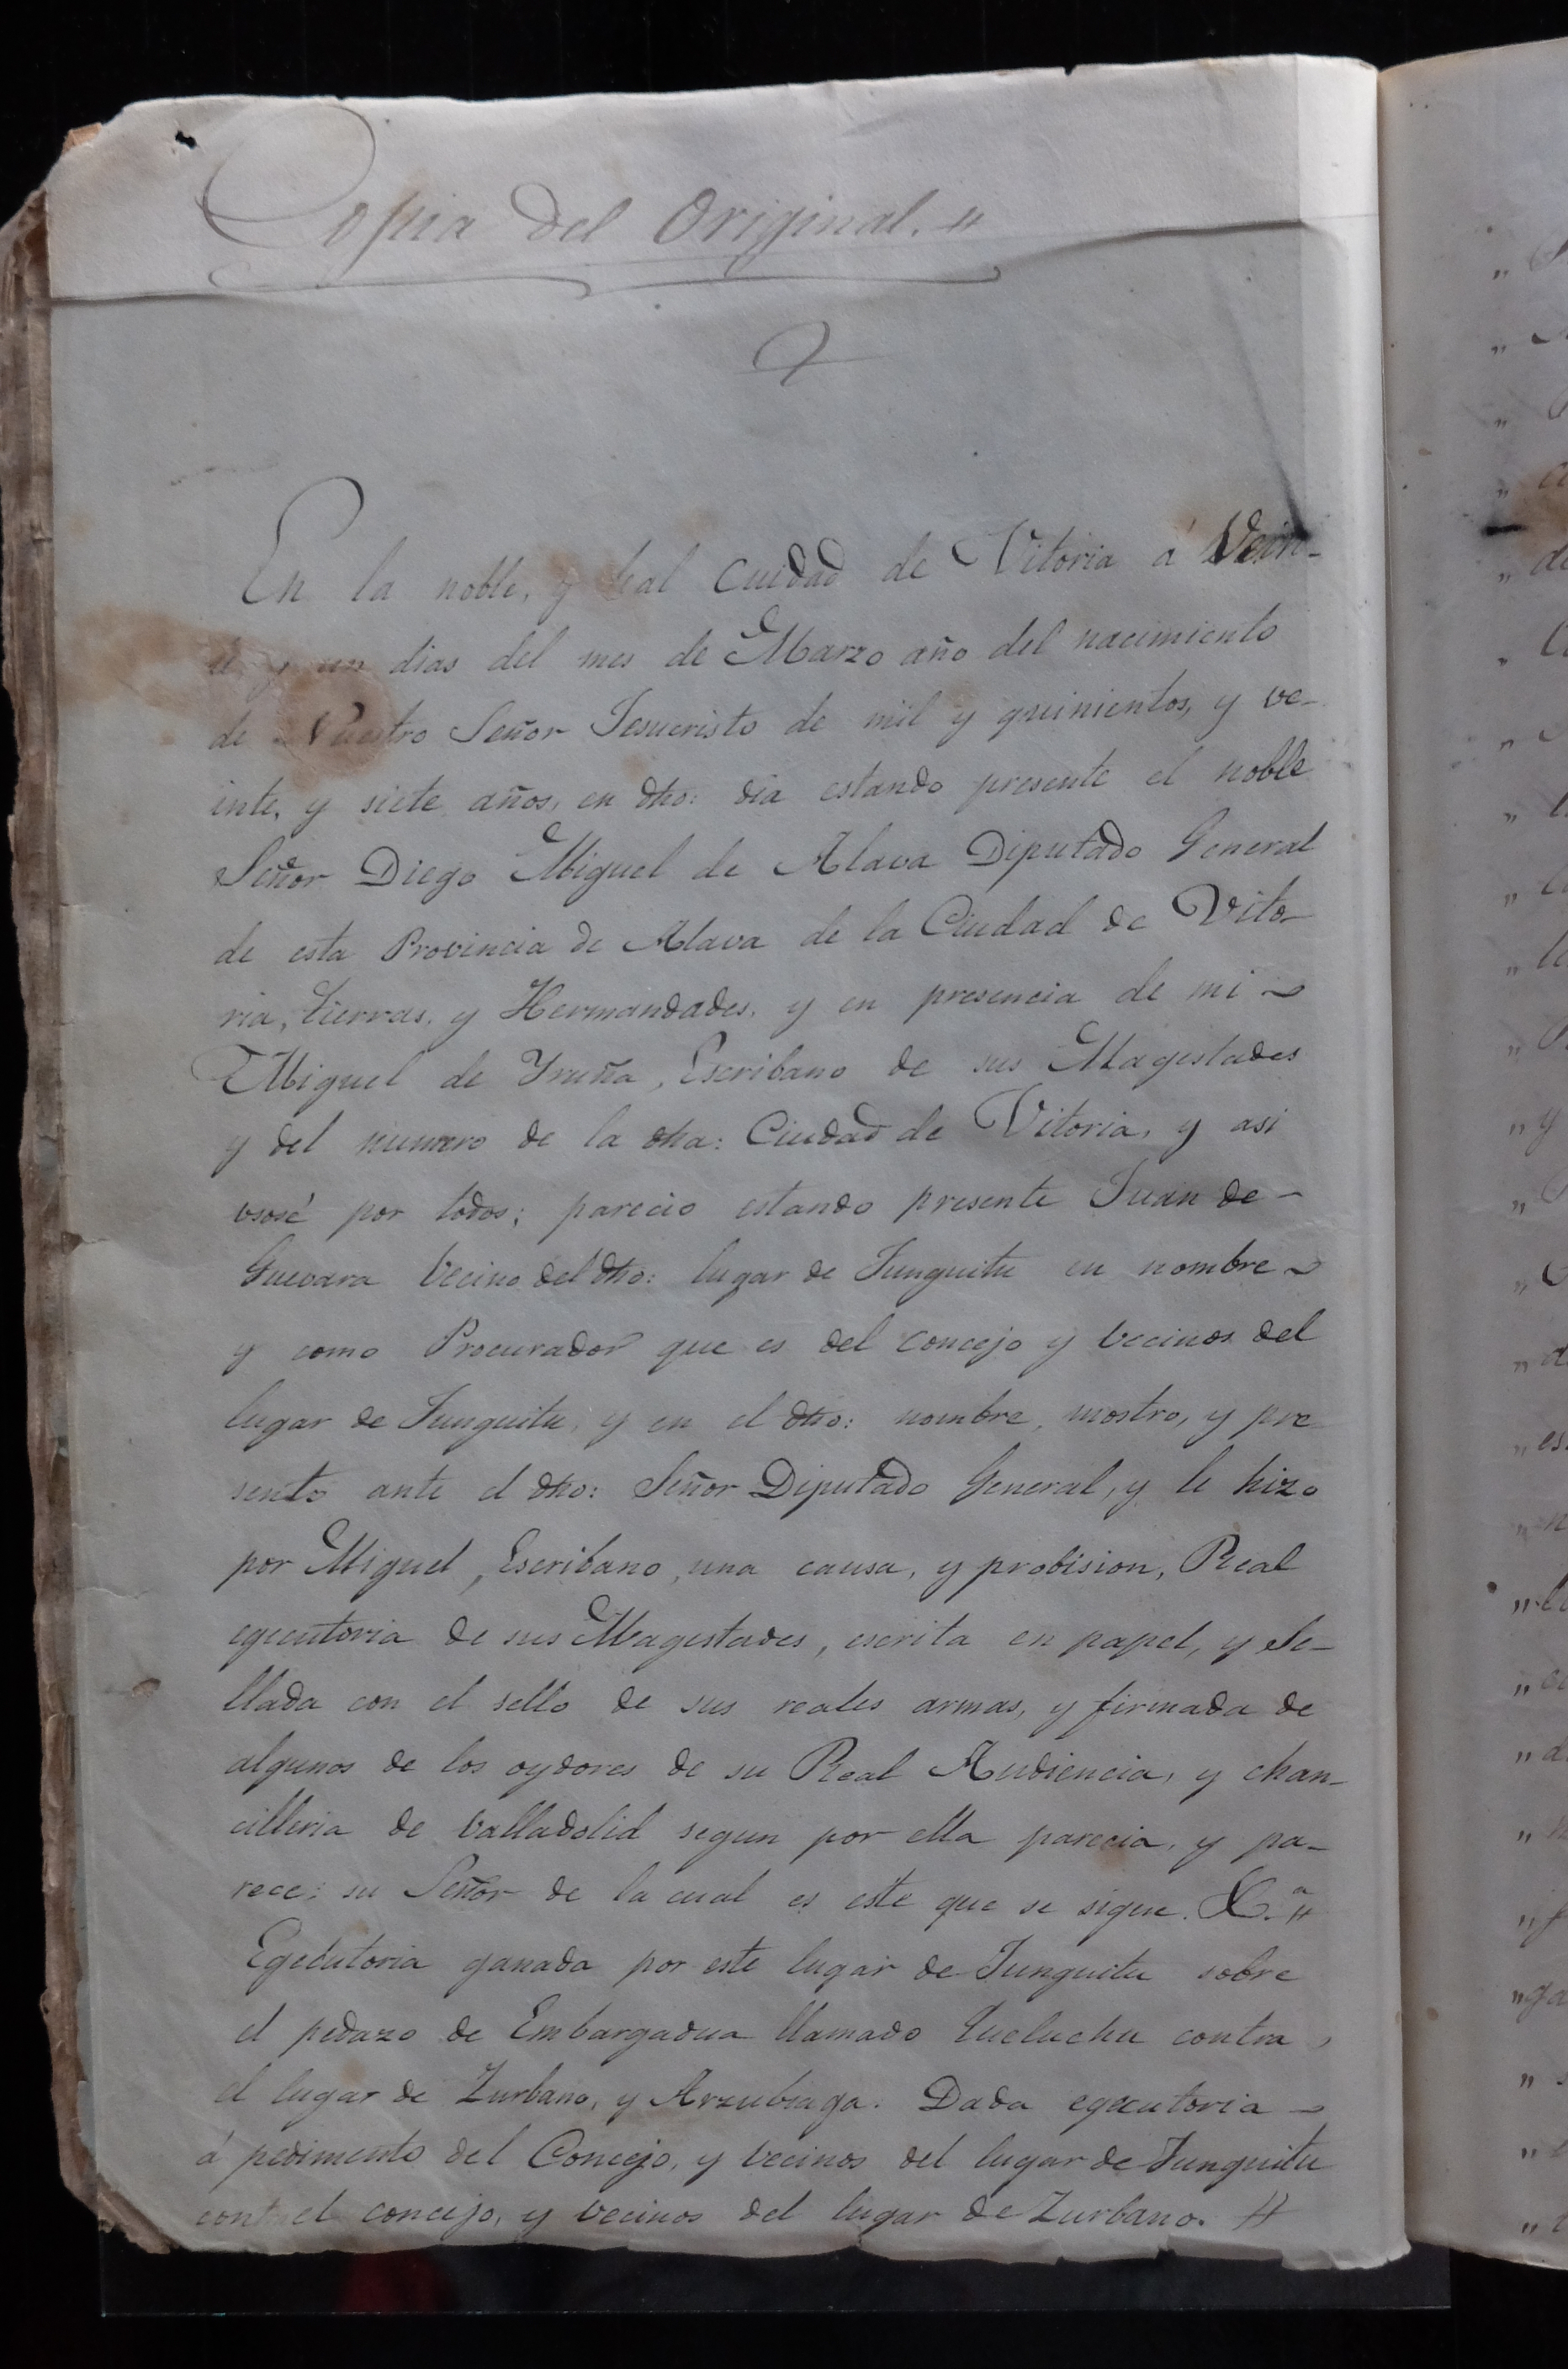 Copia del Original. "
En la noble, y leal Cuidad de Vitoria á Vein-
te y un dias del mes de Marzo año del nacimiento
de Nuestro Señor Jesucristo de mil y quinientos, y ve-
inte, y siete años, en dho: dia estando presente el noble
Señor Diego Miguel de Alava Diputado General
de esta Provincia de Alava de la Ciudad de Vito-
ria, tierras, y Hermandades, y en presencia de mi
Miguel de Yruña, Escribano de sus Magestades
y del numero de la dha: Ciudad de Vitoria, y asi
por todos; parecio estando presente Juan de-
Guevara Vecino del dho: lugar de Junguitu en nombre
y como Procurador que es del concejo y vecinos del
lugar de Junguitu, y en el dho: nombre, mostro, y pre
sento ante el dho: Señor Diputado General, y le hizo
por Miguel, Escribano, una causa, y probision, Real
egecutoria de sus Magestades, escrita en papel, y Se-
llada con el sello de sus reales armas, y firmada de
algunos de los oydores de su Real Audiencia, y chan-
cilleria de Valladolid segun por ella parecia, y pa-
rece: su Señor de la cual es este que se sigue.
Egecutoria ganada por este lugar de Junguitu sobre
el pedazo de Embargadua llamado contra
el lugar de Zurbano, y Arzubiaga. Dada egecutoria
á pedimento del Concejo, y vecinos del lugar de Junguitu
el concejo, y vecinos del lugar de Zurbano. "